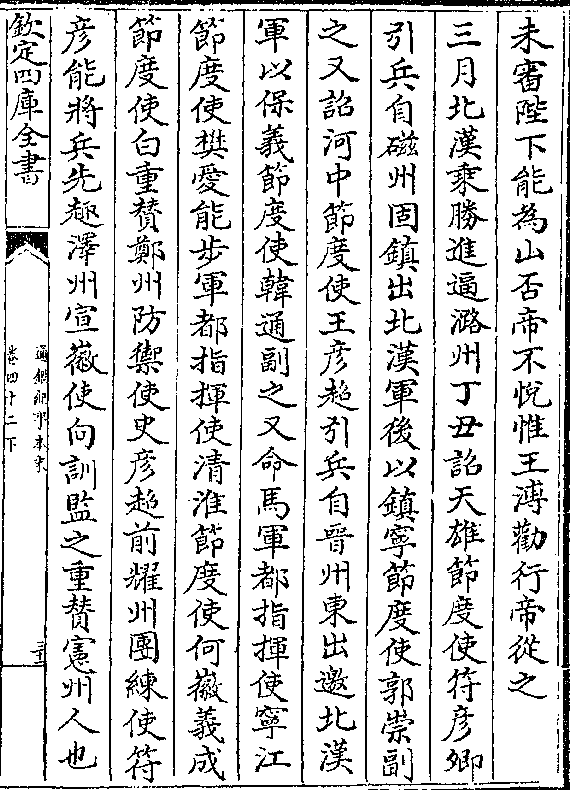 未審陛下能為山否帝不悅惟王溥勸行帝從之
三月北漢乘勝進逼潞州丁丑詔天雄節度使符彦卿
引兵自磁州固鎮出北漢軍後以鎮寧節度使郭崇副
之又詔河中節度使王彦超引兵自晉州東出邀北漢
軍以保義節度使韓通副之又命馬軍都指揮使寧江
節度使樊愛能步軍都指揮使清淮節度使何徽義成
節度使白重賛鄭州防禦使史彦超前耀州團練使符
彦能將兵先趣澤州宣徽使向訓監之重賛憲州人也
欽定四庫全書
通鑑紀事本末
卷四十二下